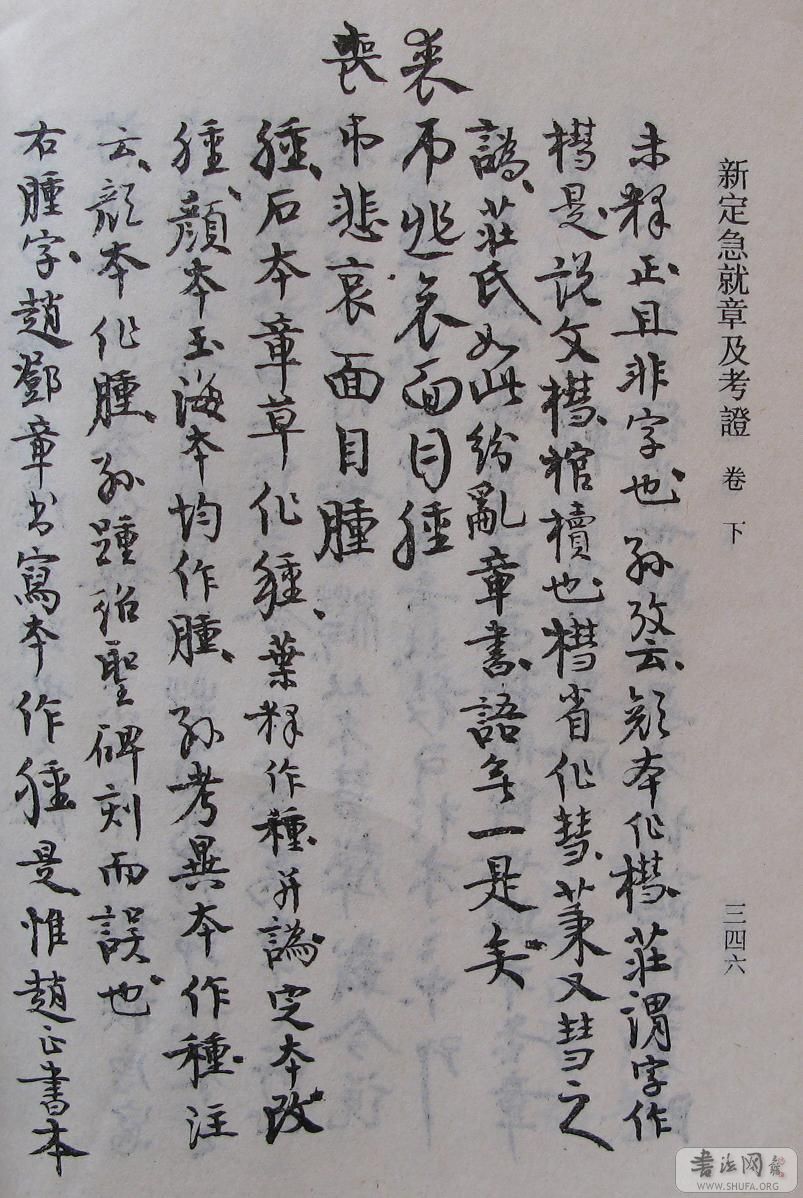 新定急就章及考證 卷下
三四六
未釋正且非字也孫攷云顏本作槥莊謂字作
槥是說文槥棺櫝也槥省作彗莱又彗之
譌莊氏如此紛亂章書語無一是矣
喪弔悲哀面目腫
喪弔悲哀面目腫
腫石本章草作腫葉釋作種并譌定本改
腫顏本玉海本均作腫孫考異本作種注
云顏本作腫孫踵紹聖碑刻而誤也
右腫字趙鄧章書寫本作腫是惟趙正書本
書法网
WWW.SHUFA.ORG